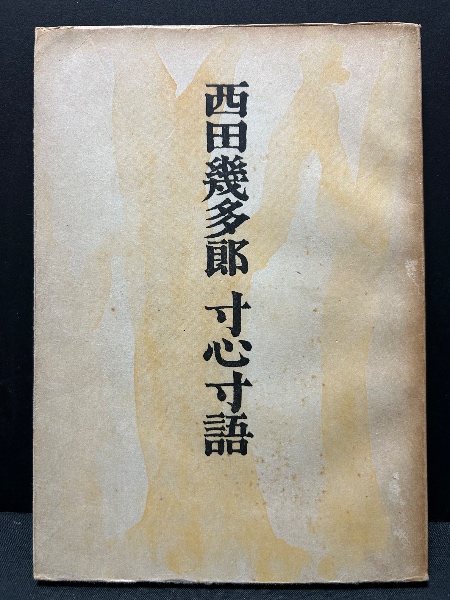 西田幾多郎 寸心寸語